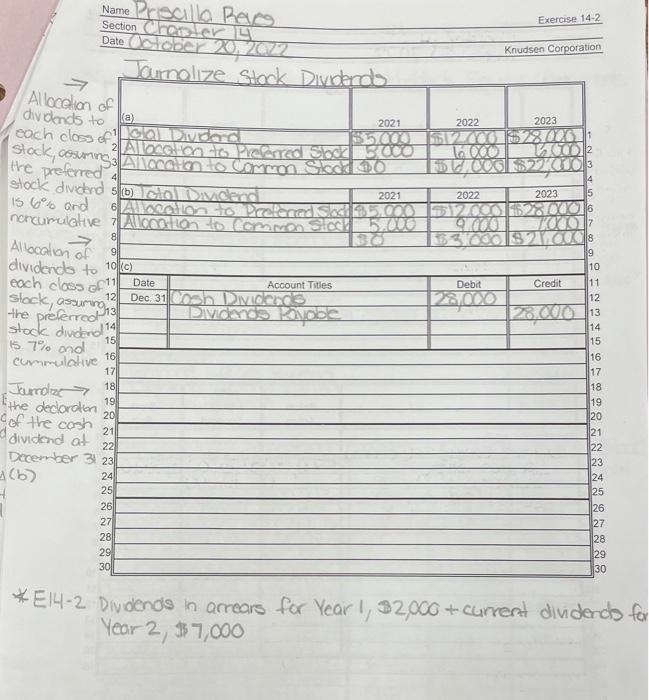 Name Priscilla Reyes
Exercise 14-2
Section Chapter 14
Date October 20, 2022
Knudsen Corporation
Journalize Stock Dividends
→
Allocation of
dividends to
each class of
stock, assuming
the preferred
stock dividend
is 6% and
noncumulative
(a) 2021 2022 2023
1 Total Dividend $5,000 $12,000 $28,000 1
2 Allocation to Preferred Stock 5,000 6,000 6,000 2
3 Allocation to Common Stock $0 $6,000 $22,000 3
4 4
→
Allocation of
dividends to
each class of
stock, assuming
the preferred
stock dividend
is 7% and
cummulative
5 (b) Total Dividend 2021 2022 2023 5
6 Allocation to Preferred Stock $5,000 $12,000 $28,000 6
7 Allocation to Common Stock 5,000 9,000 7,000 7
8 $0 $3,000 $21,000 8
9 9
10 (c) 10
11 Date Account Titles Debit Credit 11
12 Dec. 31 Cash Dividends 28,000 12
13 Dividends Payable 28,000 13
14 14
15 15
16 16
17 17
Journalize →
the declaration
of the cash
dividend at
December 31
(b)
18 18
19 19
20 20
21 21
22 22
23 23
24 24
25 25
26 26
27 27
28 28
29 29
30 30
* E14-2 Dividends in arrears for Year 1, $2,000 + current dividends for
Year 2, $7,000